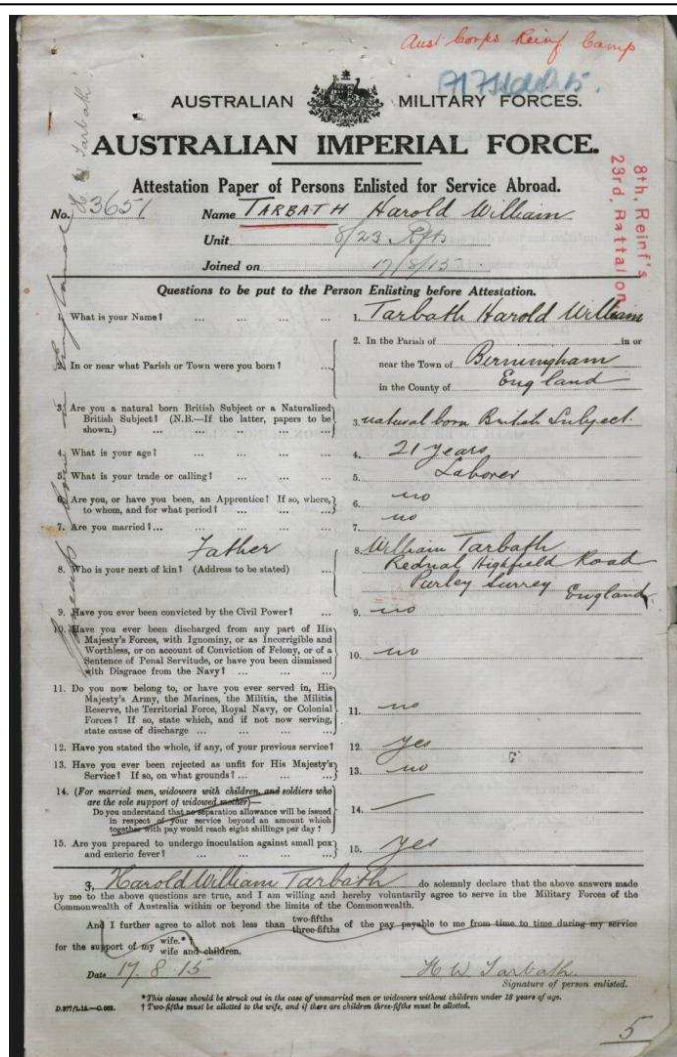 Aust Corps Reinf Camp
AUSTRALIAN MILITARY FORCES.
AUSTRALIAN IMPERIAL FORCE.
8th, Reinf's
23rd, Battalion
Attestation Paper of Persons Enlisted for Service Abroad.
No. 3651 Name TARBATH Harold William
Unit 8/23 Rfts
Joined on 17/8/15
Questions to be put to the Person Enlisting before Attestation.
1. What is your Name? ... ... ... ... 1. Tarbath Harold William
2. In or near what Parish or Town were you born? ... 2. In the Parish of in or
near the Town of Birmingham
in the County of England
3. Are you a natural born British Subject or a Naturalized
British Subject? (N.B.—If the latter, papers to be
shown.) ... ... ... ... ... 3. natural born British Subject.
4. What is your age? ... ... ... ... 4. 21 years
5. What is your trade or calling? ... ... ... 5. Laborer
6. Are you, or have you been, an Apprentice? If so, where,
to whom, and for what period? ... ... ... 6. no
7. Are you married? ... ... ... ... 7. no
Father
8. Who is your next of kin? (Address to be stated) ... 8. William Tarbath
Rednal Highfield Road
Purley Surrey England
9. Have you ever been convicted by the Civil Power? ... 9. no
10. Have you ever been discharged from any part of His
Majesty's Forces, with Ignominy, or as Incorrigible and
Worthless, or on account of Conviction of Felony, or of a
Sentence of Penal Servitude, or have you been dismissed
with Disgrace from the Navy? ... ... ... 10. no
11. Do you now belong to, or have you ever served in, His
Majesty's Army, the Marines, the Militia, the Militia
Reserve, the Territorial Force, Royal Navy, or Colonial
Forces? If so, state which, and if not now serving,
state cause of discharge ... ... ... ... 11. no
12. Have you stated the whole, if any, of your previous service? 12. yes
13. Have you ever been rejected as unfit for His Majesty's
Service? If so, on what grounds? ... ... ... 13. no
14. (For married men, widowers with children, and soldiers who
are the sole support of widowed mother)—
Do you understand that no separation allowance will be issued
in respect of your service beyond an amount which
together with pay would reach eight shillings per day? 14. —
15. Are you prepared to undergo inoculation against small pox
and enteric fever? ... ... ... ... 15. Yes
I, Harold William Tarbath do solemnly declare that the above answers made
by me to the above questions are true, and I am willing and hereby voluntarily agree to serve in the Military Forces of the
Commonwealth of Australia within or beyond the limits of the Commonwealth.
And I further agree to allot not less than two-fifths
three-fifths of the pay payable to me from time to time during my service
for the support of my wife.*
wife and children.
Date 17.8.15 H W Tarbath.
Signature of person enlisted.
* This clause should be struck out in the case of unmarried men or widowers without children under 18 years of age.
† Two-fifths must be allotted to the wife, and if there are children three-fifths must be allotted.
5